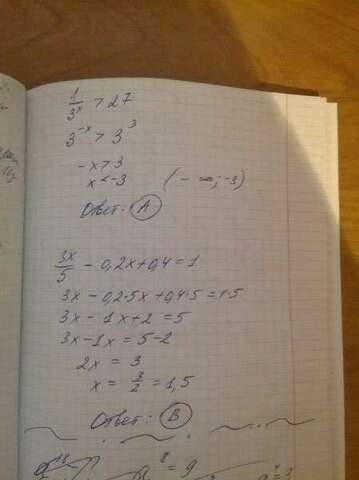 1/3^x > 27
3^-x > 3^3
-x > 3
x < -3 (-∞; -3)
Ответ: A
3x/5 - 0,2x + 0,4 = 1
3x - 0,2·5x + 0,4·5 = 1·5
3x - 1x + 2 = 5
3x - 1x = 5 - 2
2x = 3
x = 3/2 = 1,5
Ответ: B